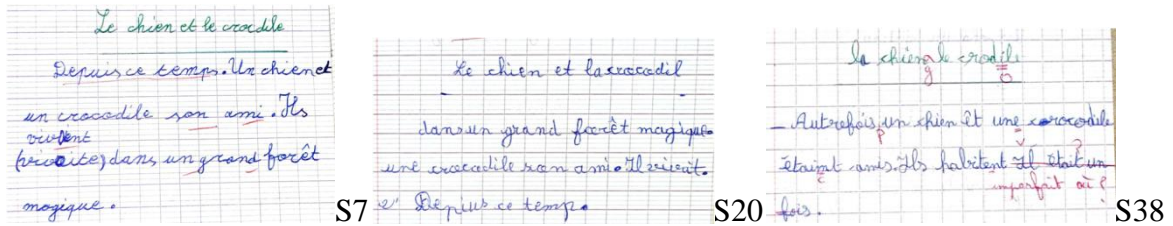 Le chien et le crocdile
Depuis ce temps. Un chien et
un crocodile son ami. Ils
vivent
(vivaite) dans un grand forêt
magique.
S7
Le chien et la crocodil
dans un grand foorêt magique.
une crocodile son ami. Il vivent.
Depius ce temp.
S20
la chien le crodile
g
o
- Autrefois un chien et une corocodile
p
v
?
étaint amis. Ils habitent Il était un
c
imparfait où ?
fois.
S38